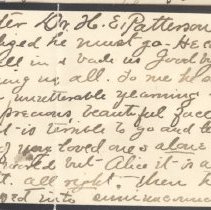 der Dr. H. E. Patterson
ged he must go. He c
all in & bade us Good b
ing us all. To me he s
unutterable yearning
precious beautiful face
it is terrible to go and le
your loved ones alone
but Alice it is a
t. all right. Then h
sed into unconscious